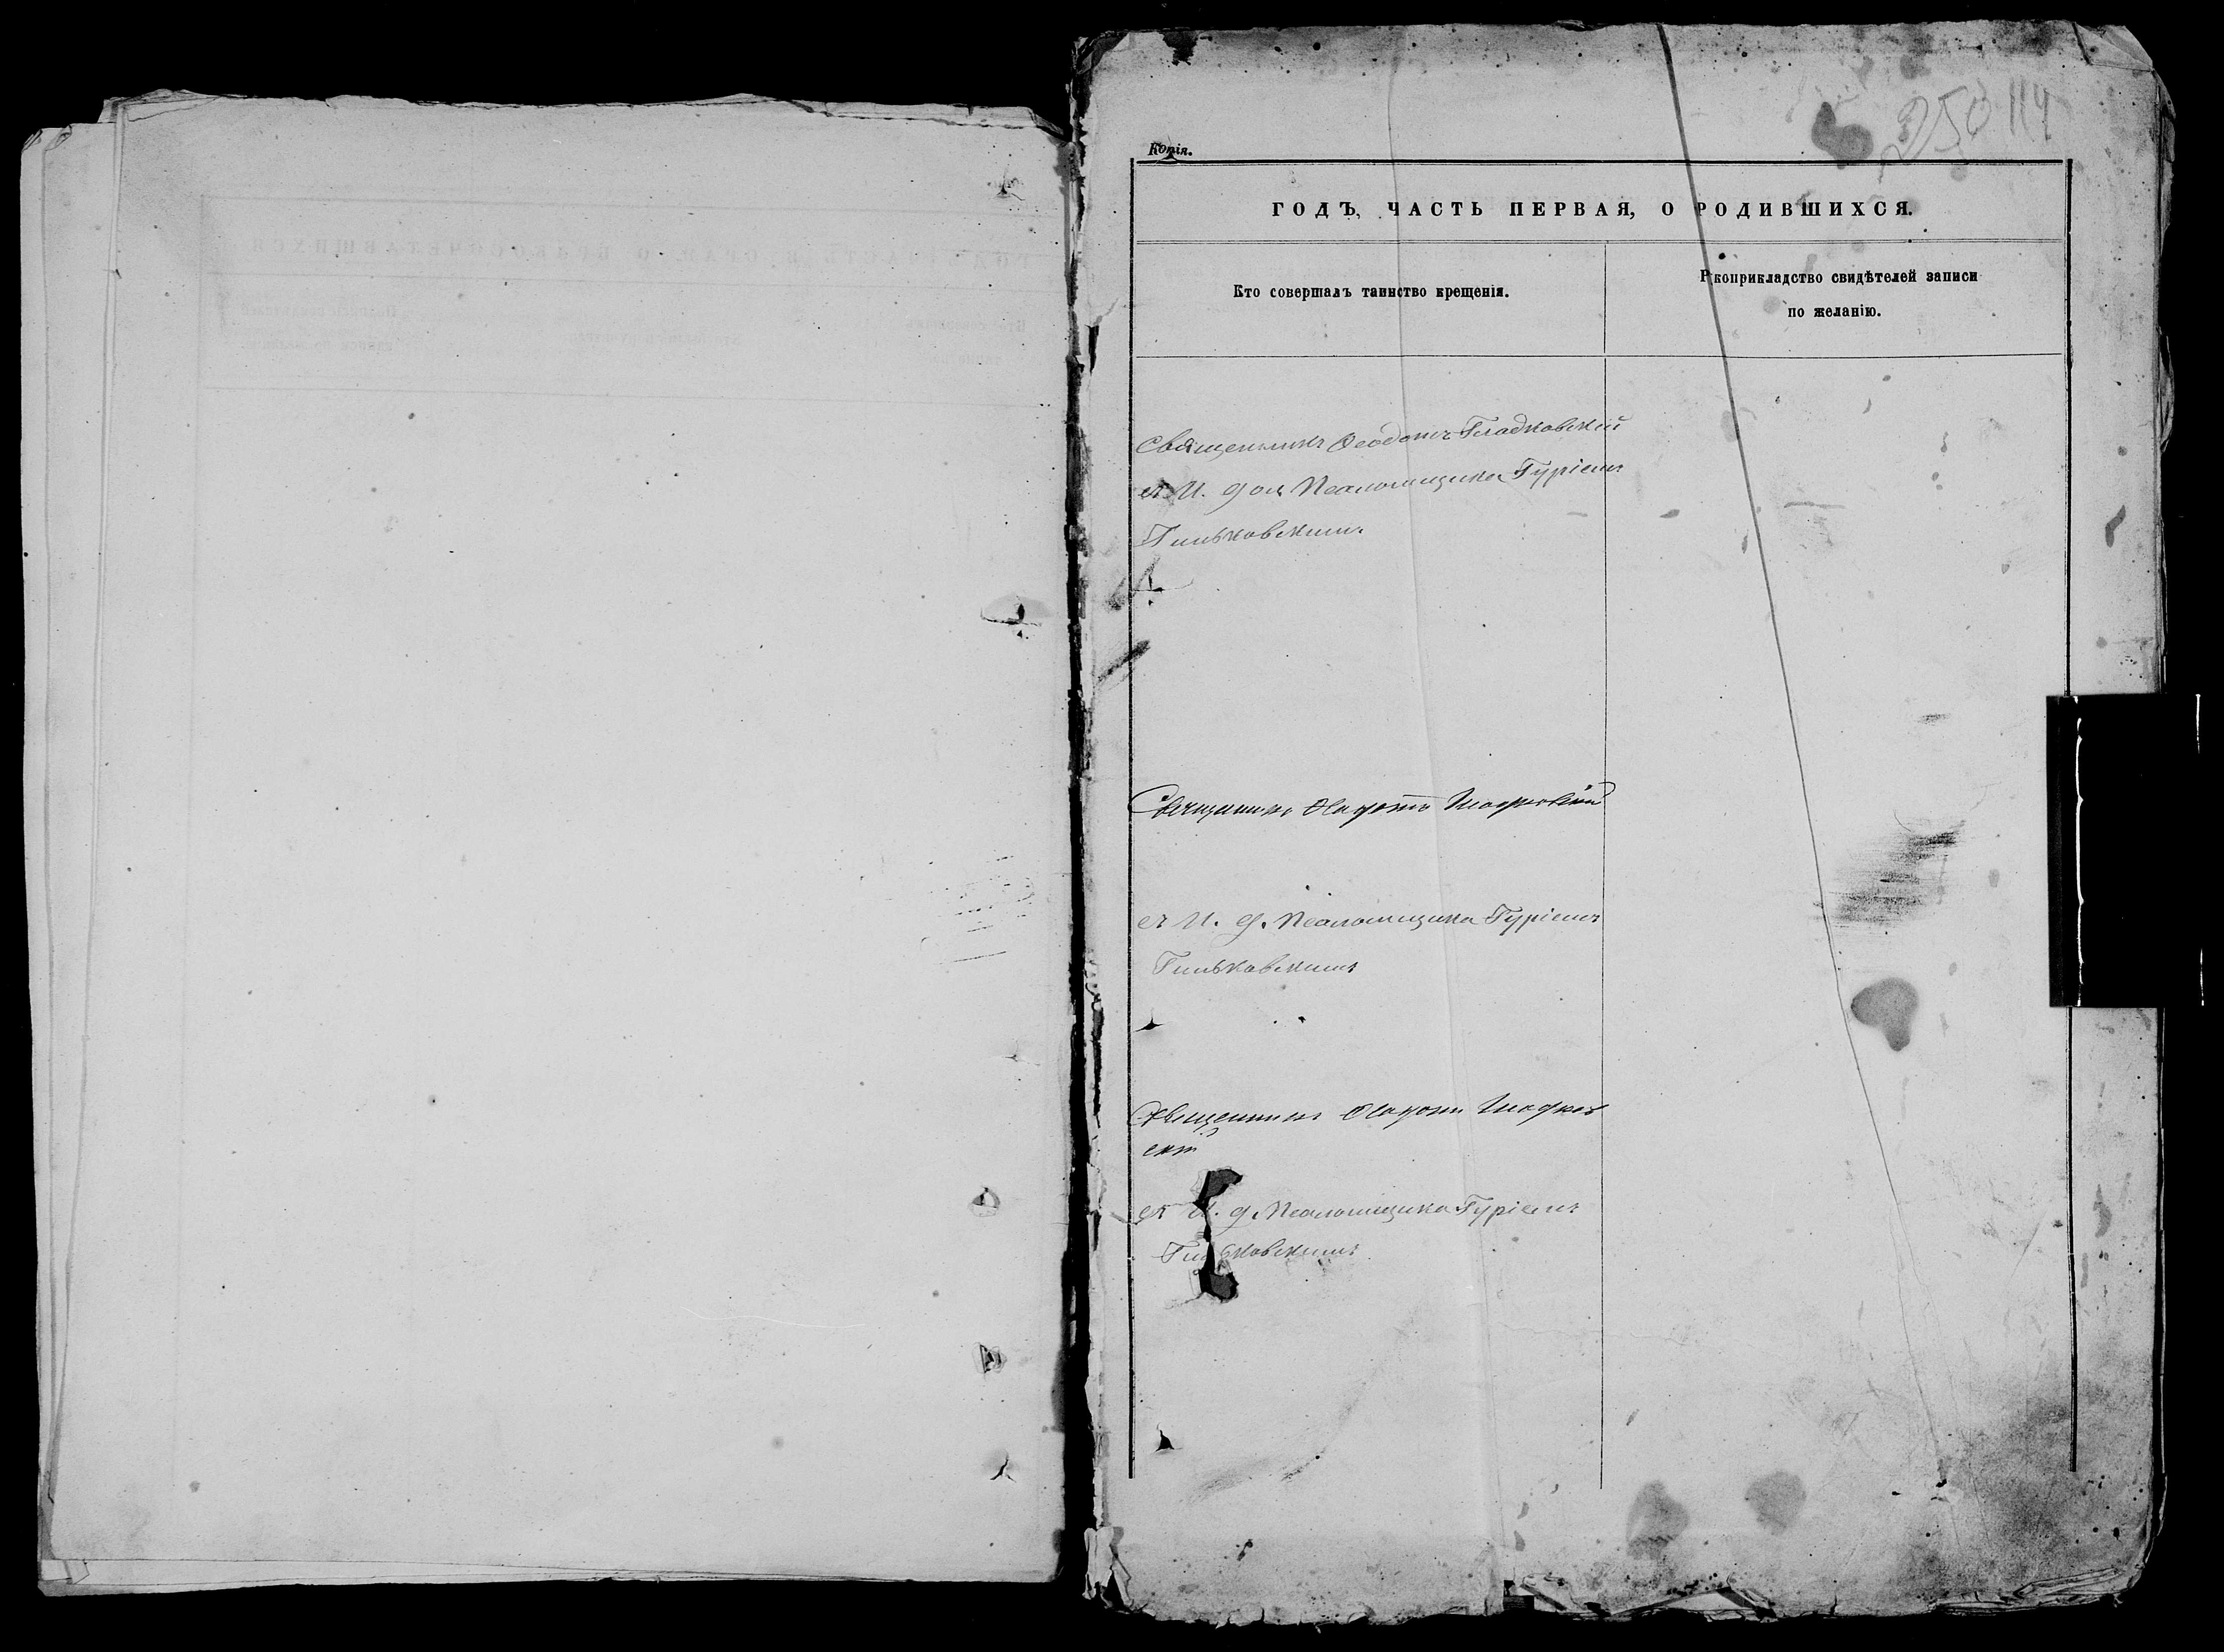 250 114
Копія.
ГОДЪ, ЧАСТЬ ПЕРВАЯ, О РОДИВШИХСЯ.
Кто совершалъ таинство крещенія.
Рукоприкладство свидѣтелей записи
по желанію.
Священникъ Ѳеодотъ Гладковскій
съ И. дол. Псаломщика Гуріемъ
Гиньковскимъ
Священникъ Ѳеодотъ Гладковскій
съ И. д. Псаломщика Гуріемъ
Гиньковскимъ
Священникъ Ѳеодотъ Гладков
скій
съ И. д. Псаломщика Гуріемъ
Гиньковскимъ